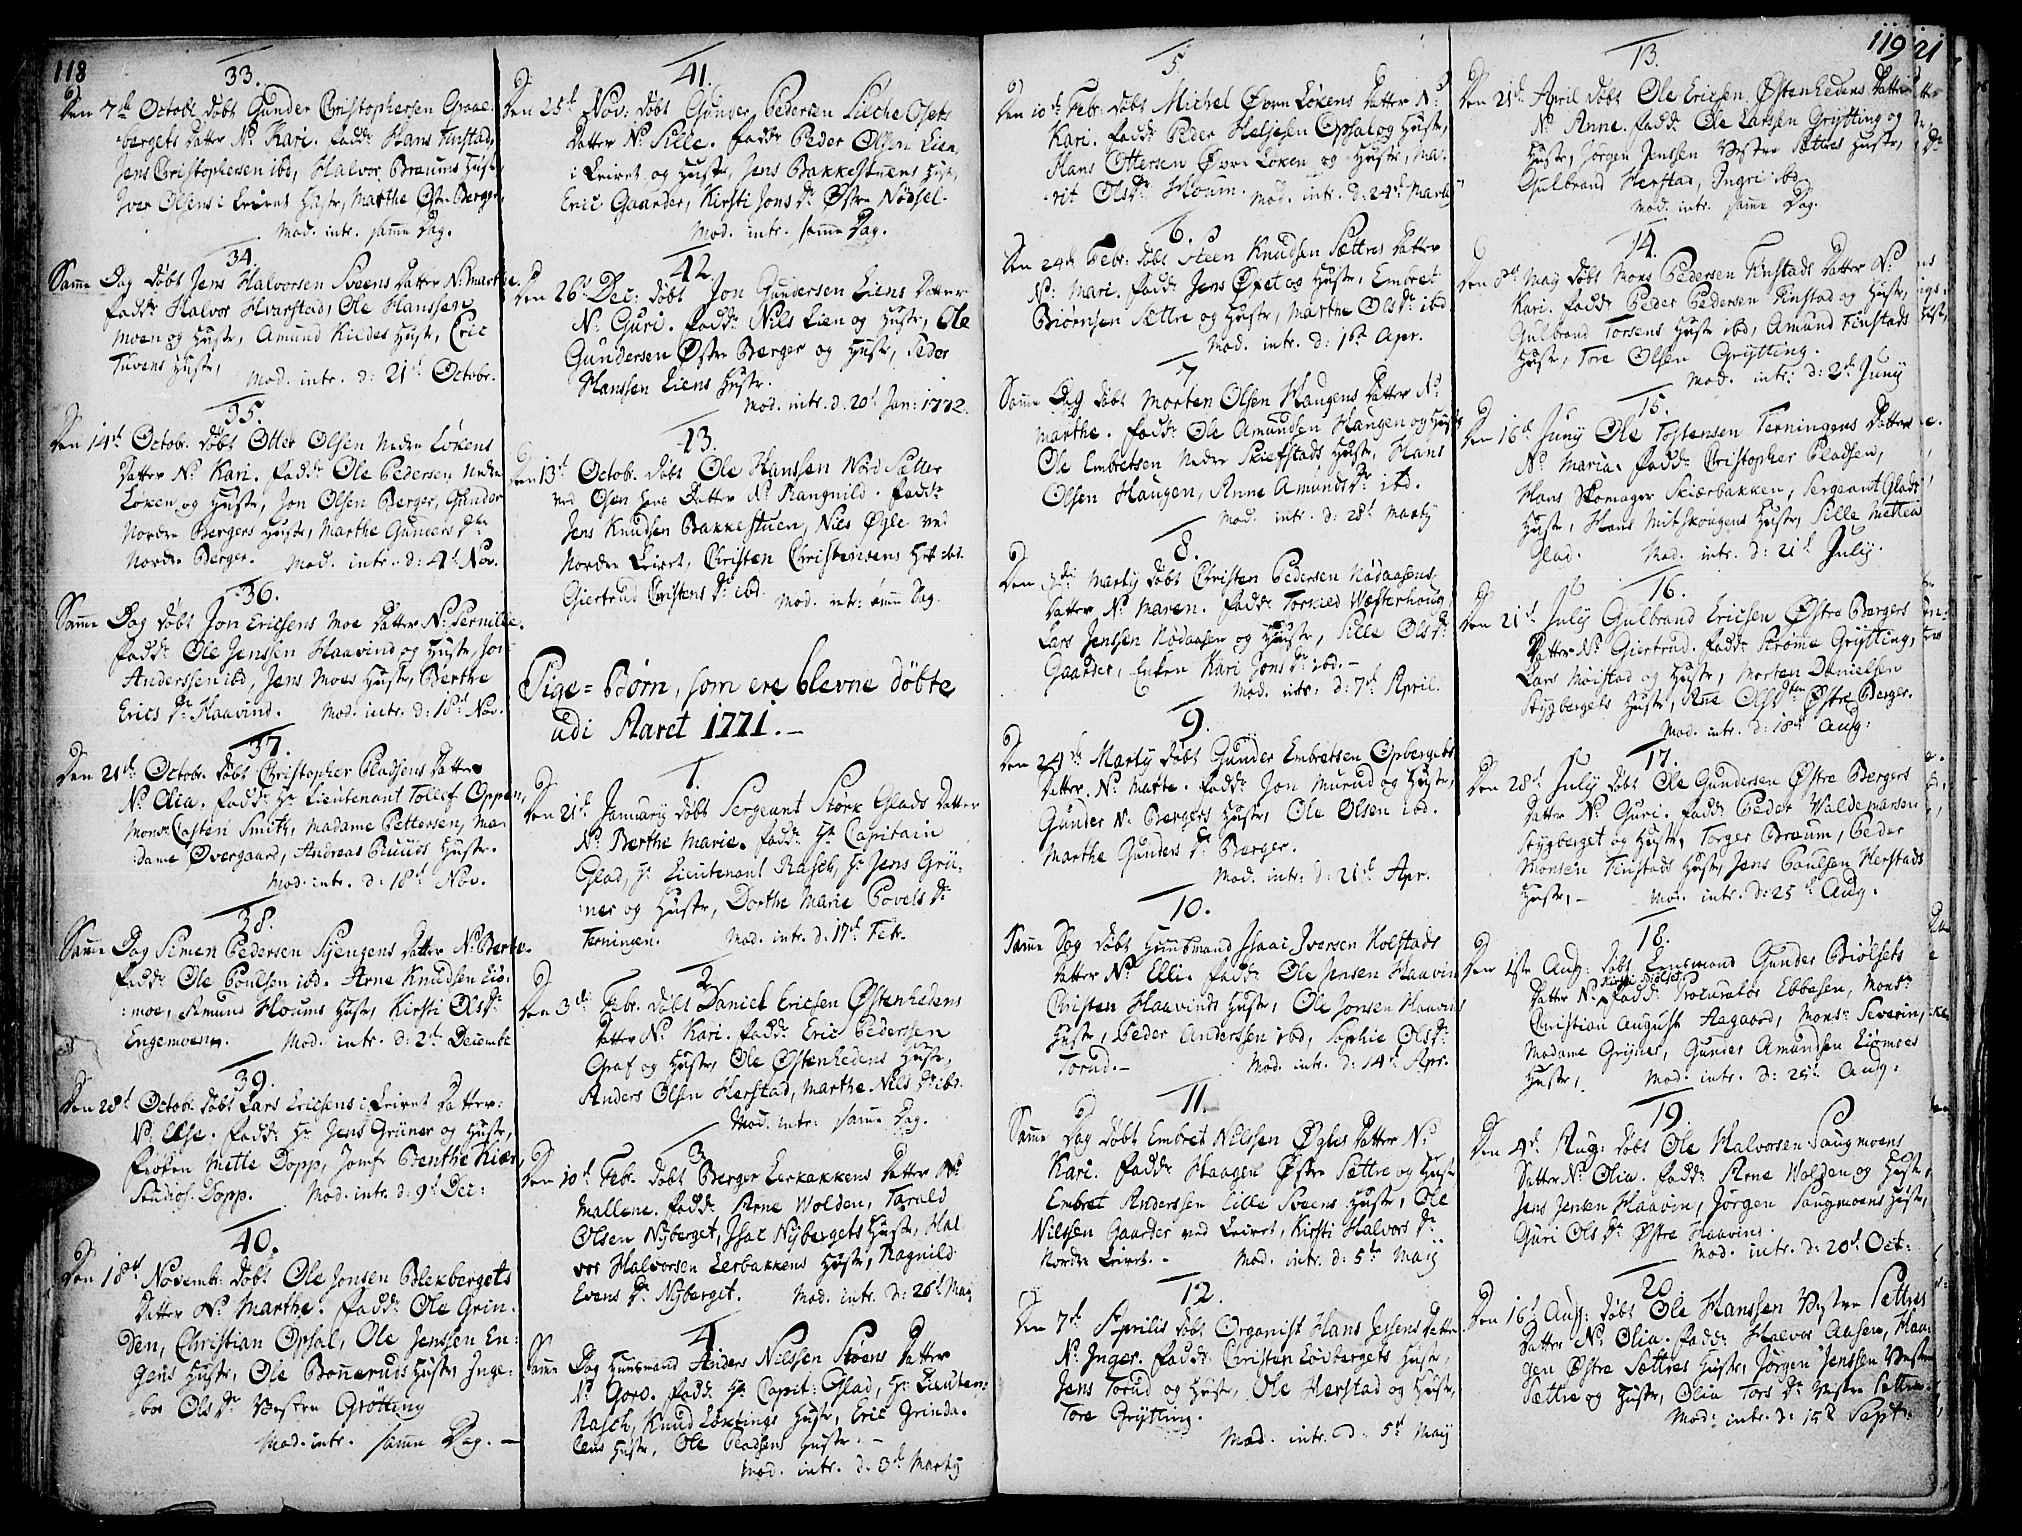 118
33.
Den 7de Octobr. døbt Gunder Christophersen Graae-
bergets Datter N. Kari. Fadd. Hans Finstad,
Jens Christophersen ibd, Halvor Bræums Hustr.
Iver Olsens i Leiret Hustr, Marthe Østr. Berger,
Mod. intr. samme Dag.
34.
Samme Dag døbt Jens Halvorsen Sveens Datter N. Marthe.
Fadd. Halvor Hvarstad, Ole Hanssen
Moen og Hustr, Amund Kildes Hustr, Eric
Tuvens Hustr,
Mod. intr. d: 21de Octobr.
35.
Den 14de Octob. døbt Otter Olsen Nedre Løkens
Datter N. Kari. Fadd. Ole Pedersen Nedre
Løken og Hustr, Jon Olsen Berger, Gunder
Nordre Bergers Hustr, Marthe Gunders Dtr
Nordre Berger. Mod. intr. d: 4de Nov.
36.
Samme Dag døbt Jon Ericsens Moe Datter N. Pernille.
Fadd. Ole Jenssen Haavind og Hustr, Jon
Anderssen ibd, Jens Moes Hustr, Berthe
Erics Dr Haavind. Mod. intr. d: 18de Nov.
37.
Den 21de Octobr. døbt Christopher Pladsens Datter
N. Olia. Fadd. Hr Lieutenant Tollef Oppen,
Monsr Casten Smith, Madame Pettersen, Ma-
dame Overgaard, Andreas Ruuds Hustr.
Mod. intr. d: 18de Nov.
38.
Samme Dag Simen Pedersen Syengens Datter N. Berte.
Fadd. Ole Poulsen ibd. Arne Knudsen Lió-
:moe, Amund Houms Hustr, Kirsti Ols Dr
Engemoen. Mod. intr. d: 2de Decemb:
39.
Den 28de Octob. døbt Lars Ericsens i Leiret Datter:
N. Else. Fadd. Hr Jens Grüner og Hustr,
Frøken Mette Dopp, Jomfr Benthe Kiær,
Studios. Dopp. Mod. intr. d: 9de Dec:
40.
Den 18de Novemb. døbt Ole Jonsen Blekbergets
Datter N. Marthe. Fadd. Ole Grin-
den, Christian Opsal, Ole Jenssen En-
gens Hustr, Ole Bønneruds Hustr, Inge-
bor Ols Dr Vestre Grøtting
Mod. intr. samme Dag.
41.
Den 25de Nov: døbt Gunder Pedersen Lilche Osets
Datter N. Sille. Fadd. Peder Olsen Lien,
i Leiret og Hustr, Jens Bakkestuens Hustr,
Eric Gaarder, Kirsti Jons Dr Østre Nødsel.
Mod. intr. samme Dag.
42.
Den 26de Dec: døbt Jon Gundersen Liens Datter
N. Guri. Fadd. Nils Lien og Hustr, Ole
Gundersen Østre Berger og Hustr, Peder
Hanssen Liens Hustr.
Mod. intr. d. 20de Jan: 1772.
43.
Den 13de Octob. døbt Ole Hanssen Nord Sætter
ved Osen hans Datter N. Rangnild. Fadd.
Jens Knudsen Bakkestuen, Nies Øgle ved
Nordre Leiret, Christen Christensens Hustr ibd.
Giertrud Christens Dr ibd. Mod. intr: samme Dag.
Pige-Børn, som ere blevne døbte
udi Aaret 1771.
1.
Den 21de January døbt Sergeant Stork Glads Datter
N. Berthe Marie. Fadd. Hr Capitain
Glad, Hr Lieutenant Rasch, Hr Jens Grü-
:ner og Hustr, Dorthe Marie Povels Dr
Terningen. Mod. intr. d. 17de Febr.
2.
Den 3die Febr. døbt Daniel Ericsen Østenhedens
Datter N. Kari. Fadd. Eric Pederssen
Graf og Hustr, Ole Østenhedens Hustr,
Anders Olsen Herstad, Marthe Nils Dr ibd.
Mod. intr: samme Dag.
3.
Den 10de Febr. døbt Berger Lerbakkens Datter N.
Mallene. Fadd. Arne Wolden, Tarald
Olsen Nyberget, Isac Nybergets Hustr, Hal
vor Halvorsen Lerbakkens Hustr, Ragnild
Evens Dr Nyberget. Mod. intr. d: 26de May
4.
Samme Dag Huusmand Anders Nilssen Stoens Datter
N. Goro. Fadd. Hr Capit: Glad, Hr Lieuten:
Rasch, Knud Løktings Hustr, Eric Grinda-
lens Hustr, Ole Pladsens Hustr.
Mod. intr. d: 3de Marty
119
5
Den 10de Febr: døbt Michel Øvre Løkens Datter N.
Kari. Fadd. Peder Heljesen Opsal og Hustr,
Hans Ottersen Øvre Løken og Hustr, Ma-
rit Ols Dr Houm. Mod. intr. d: 24de Marty
6.
Den 24de Febr: døbt Steen Knudsen Sættres Datter
N: Mari. Fadd. Jens Øxet og Hustr, Embret
Biørnsen Sættre og Hustr, Marthe Ols Dr ibd
Mod. intr. d: 1ste Apr.
7
Samme Dag døbt Morten Olsen Haugens Datter N.
Marthe. Fadd. Ole Amundsen Haugen og Hustr
Ole Embretsen Nedre Skiefstads Hustr, Hans
Olsen Haugen, Anne Amunds Dr ibd.
Mod. intr. d: 28de Marty
8.
Den 3die Marty døbt Christen Pedersen Nødaasens
Datter N. Maren. Fadd. Torkield Wæsterhoug
Lars Jenssen Nødaasen og Hustr, Sille Ols Dr
Gaarder, Enken Kari Jons Dr ibd.
Mod. intr. d: 7de April.
9.
Den 24de Marty døbt Gunder Embretsen Opbergets
Datter N. Marte. Fadd. Jon Murud og Hustr,
Gunder N. Bergers Hustr, Ole Olsen ibd.
Marthe Gunders Dr Berger.
Mod. intr: d: 21de Apr.
10.
Samme Dag døbt Huusmand Isaac Iversen Kolstads
Datter N. Elli. Fadd. Ole Jensen Haavin
Christen Haavinds Hustr, Ole Jonsen Haavinds
Hustr, Peder Anderssen ibd, Sophie Ols Dr
Torud. Mod. intr. d: 14de Apr.
11.
Samme Dag døbt Embret Nilssen Øgles Datter N.
Kari. Fadd. Haagen Østre Sættre og Hustr
Embret Anderssen Lille Sveens Hustr, Ole
Nilssen Gaarder ved Leiret, Kirsti Halvors Dr
Nordre Leiret. Mod. intr. d: 5te Maij
12.
Den 7de Aprilis døbt Organist Hans Jesens Datter
N. Inger. Fadd. Christen Løvbergets Hustr,
Jens Torud og Hustr, Ole Herstad og Hustr,
Tore Grytting.
Mod. intr. d: 5te Maij
13.
Den 21de April døbt Ole Ericsen Østenhedens Datter
N. Anne. Fadd. Ole Larsen Grytting og
Hustr, Jørgen Jenssen Vestre Sættres Hustr,
Gulbrand Herstad, Ingri ibd.
Mod. intr. samme Dag.
14.
Den 8de May døbt Mons Pedersen Finstads Datter N.
Kari. Fadd. Peder Pedersen Finstad og Hustr,
Gulbrand Torsens Hustr ibd, Amund Finstads
Hustr, Tore Olsen Grytting.
Mod. intr. d: 2de Juny
15.
Den 16de Juny Ole Tostensen Terningens Datter
N. Maria. Fadd. Christopher Pladsen,
Hans Skomager Skiærbakken, Sergeant Glads
Hustr, Hans Mitskougens Hustr, Sille Mettea
Glad. Mod. intr. d: 21de July.
16.
Den 21de July Gulbrand Ericsen Østre Bergers
Datter N. Giertrud. Fadd. Strøme Grytting,
Lars Moistad og Hustr, Morten Danielsen
Stygbergets Hustr, Ane Ols Dtr Østre Berger.
Mod. intr. d: 18de Aug:
17.
Den 28de July døbt Ole Gundersen Østre Bergers
Datter N. Guri. Fadd. Peder Waldemarsen
Stygberget og Hustr, Torger Bræum, Peder
Monsen Finstads Hustr, Jens Poulsen Herstads
Hustr, Mod. intr. d: 25de Aug.
18.
Den 1ste Aug: døbt Lensmand Gunder Biølsets
Datter N. Fadd. Procurator Ebbesen, Monsr
Christian August Aagaard, Monsr Severin,
Madame Grüner, Gunder Amundsen Liømoes
Hustr, Mod. intr. d: 25de Aug:
19.
Den 4de Aug: døbt Ole Halvorsen Saugmoens
Datter N. Olia. Fadd. Arne Wolden og Hustr,
Jens Jensen Haavin, Jørgen Saugmoens Hustr,
Guri Ols Dr Østre Haavind.
Mod. intr. d: 20de Oct:
20
Den 16de Aug: døbt Ole Hanssen Vestre Settres
Datter N. Olia. Fadd. Halvor Aasen, Haa-
gen Østre Sættres Hustr, Jørgen Jenssen Vestre
Sættre og Hustr, Olia Tors Dr Vestre Settre.
Mod: intr. d: 15de Sept: